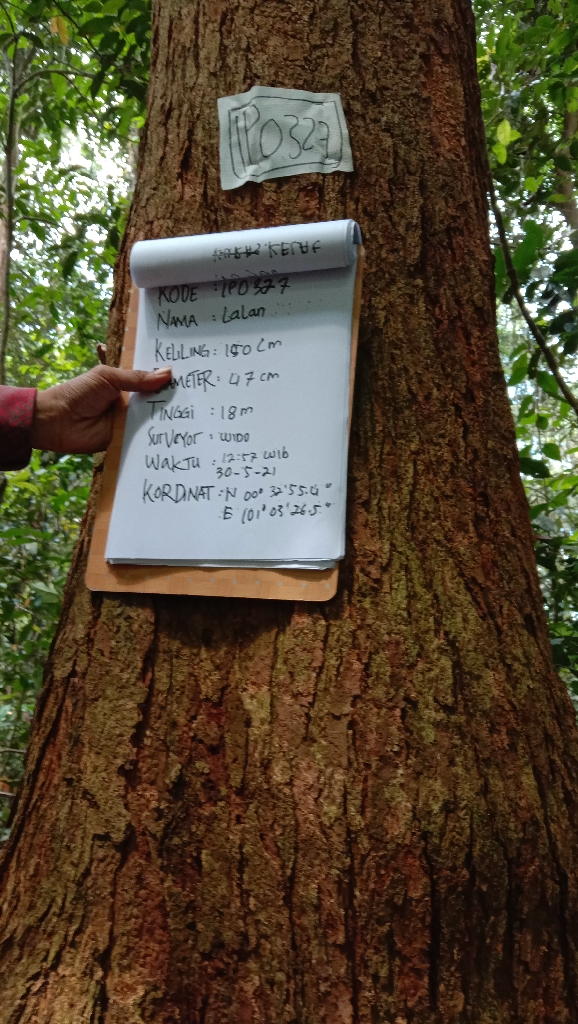 IP0327
KODE : IP0327
NAMA : Lalan
KELILING : 150 Cm
METER : 47 cm
TINGGI : 18 m
SurVEyor : WIDO
WAKTU : 12:57 WIB
30-5-21
KORDINAT : N 00° 32'55.4"
: E 101° 03'26.5"